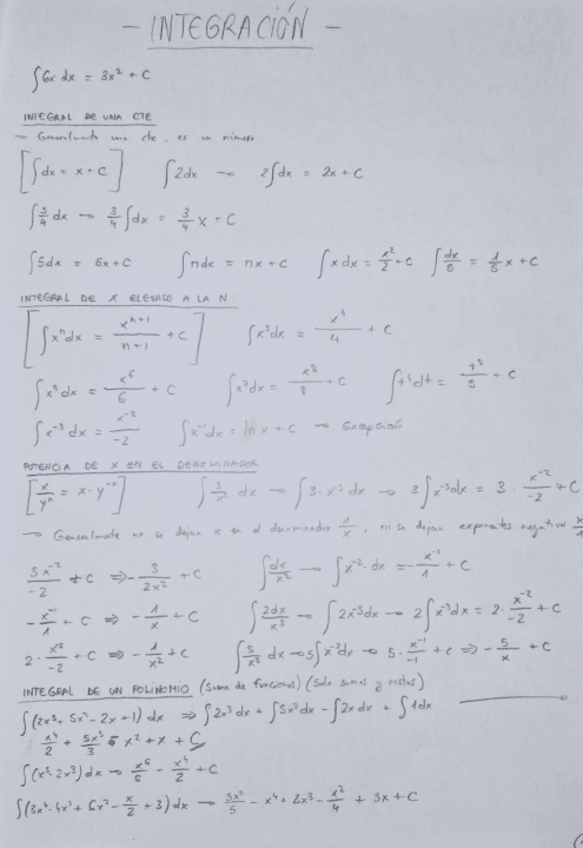 - INTEGRACIÓN -
∫6x dx = 3x² + C
INTEGRAL DE UNA CTE
→ Generalmente una cte, es un número
[∫dx = x + C] ∫2dx → 2∫dx = 2x + C
∫3/4 dx → 3/4 ∫dx = 3/4 x + C
∫5dx = 5x + C ∫ndx = nx + C ∫xdx = x²/2 + C ∫dx/5 = 1/5 x + C
INTEGRAL DE X ELEVADO A LA N
[∫xⁿdx = xⁿ⁺¹/n+1 + C] ∫x³dx = x⁴/4 + C
∫x⁵dx = x⁶/6 + C ∫x⁷dx = x⁸/8 + C ∫t⁴dt = t⁵/5 + C
∫x⁻³dx = x⁻²/-2 ∫x⁻¹dx = ln x + C → Excepción
POTENCIA DE X EN EL DENOMINADOR
[x/yⁿ = x·y⁻ⁿ] ∫3/x³ dx → ∫3·x⁻³dx → 3∫x⁻³dx = 3·x⁻²/-2 + C
→ Generalmente no se dejan x en el denominador 1/x, ni se dejan exponentes negativos
3x⁻²/-2 + C ⇒ -3/2x² + C ∫dx/x² → ∫x⁻²·dx = -x⁻¹/1 + C
-x⁻¹/1 + C ⇒ -1/x + C ∫2dx/x³ → ∫2x⁻³dx → 2∫x⁻³dx = 2·x⁻²/-2 + C
2·x⁻²/-2 + C ⇒ -1/x² + C ∫5/x² dx → 5∫x⁻²dx → 5·x⁻¹/-1 + C ⇒ -5/x + C
INTEGRAL DE UN POLINOMIO (Suma de funciones) (Solo sumas y restas)
∫(2x³ + 5x² - 2x + 1) dx ⇒ ∫2x³dx + ∫5x²dx - ∫2xdx + ∫1dx
x⁴/2 + 5x³/3 - x² + x + C
∫(x⁵ - 2x³) dx → x⁶/6 - x⁴/2 + C
∫(3x⁴ - 4x³ + 6x² - x/2 + 3) dx → 3x⁵/5 - x⁴ + 2x³ - x²/4 + 3x + C